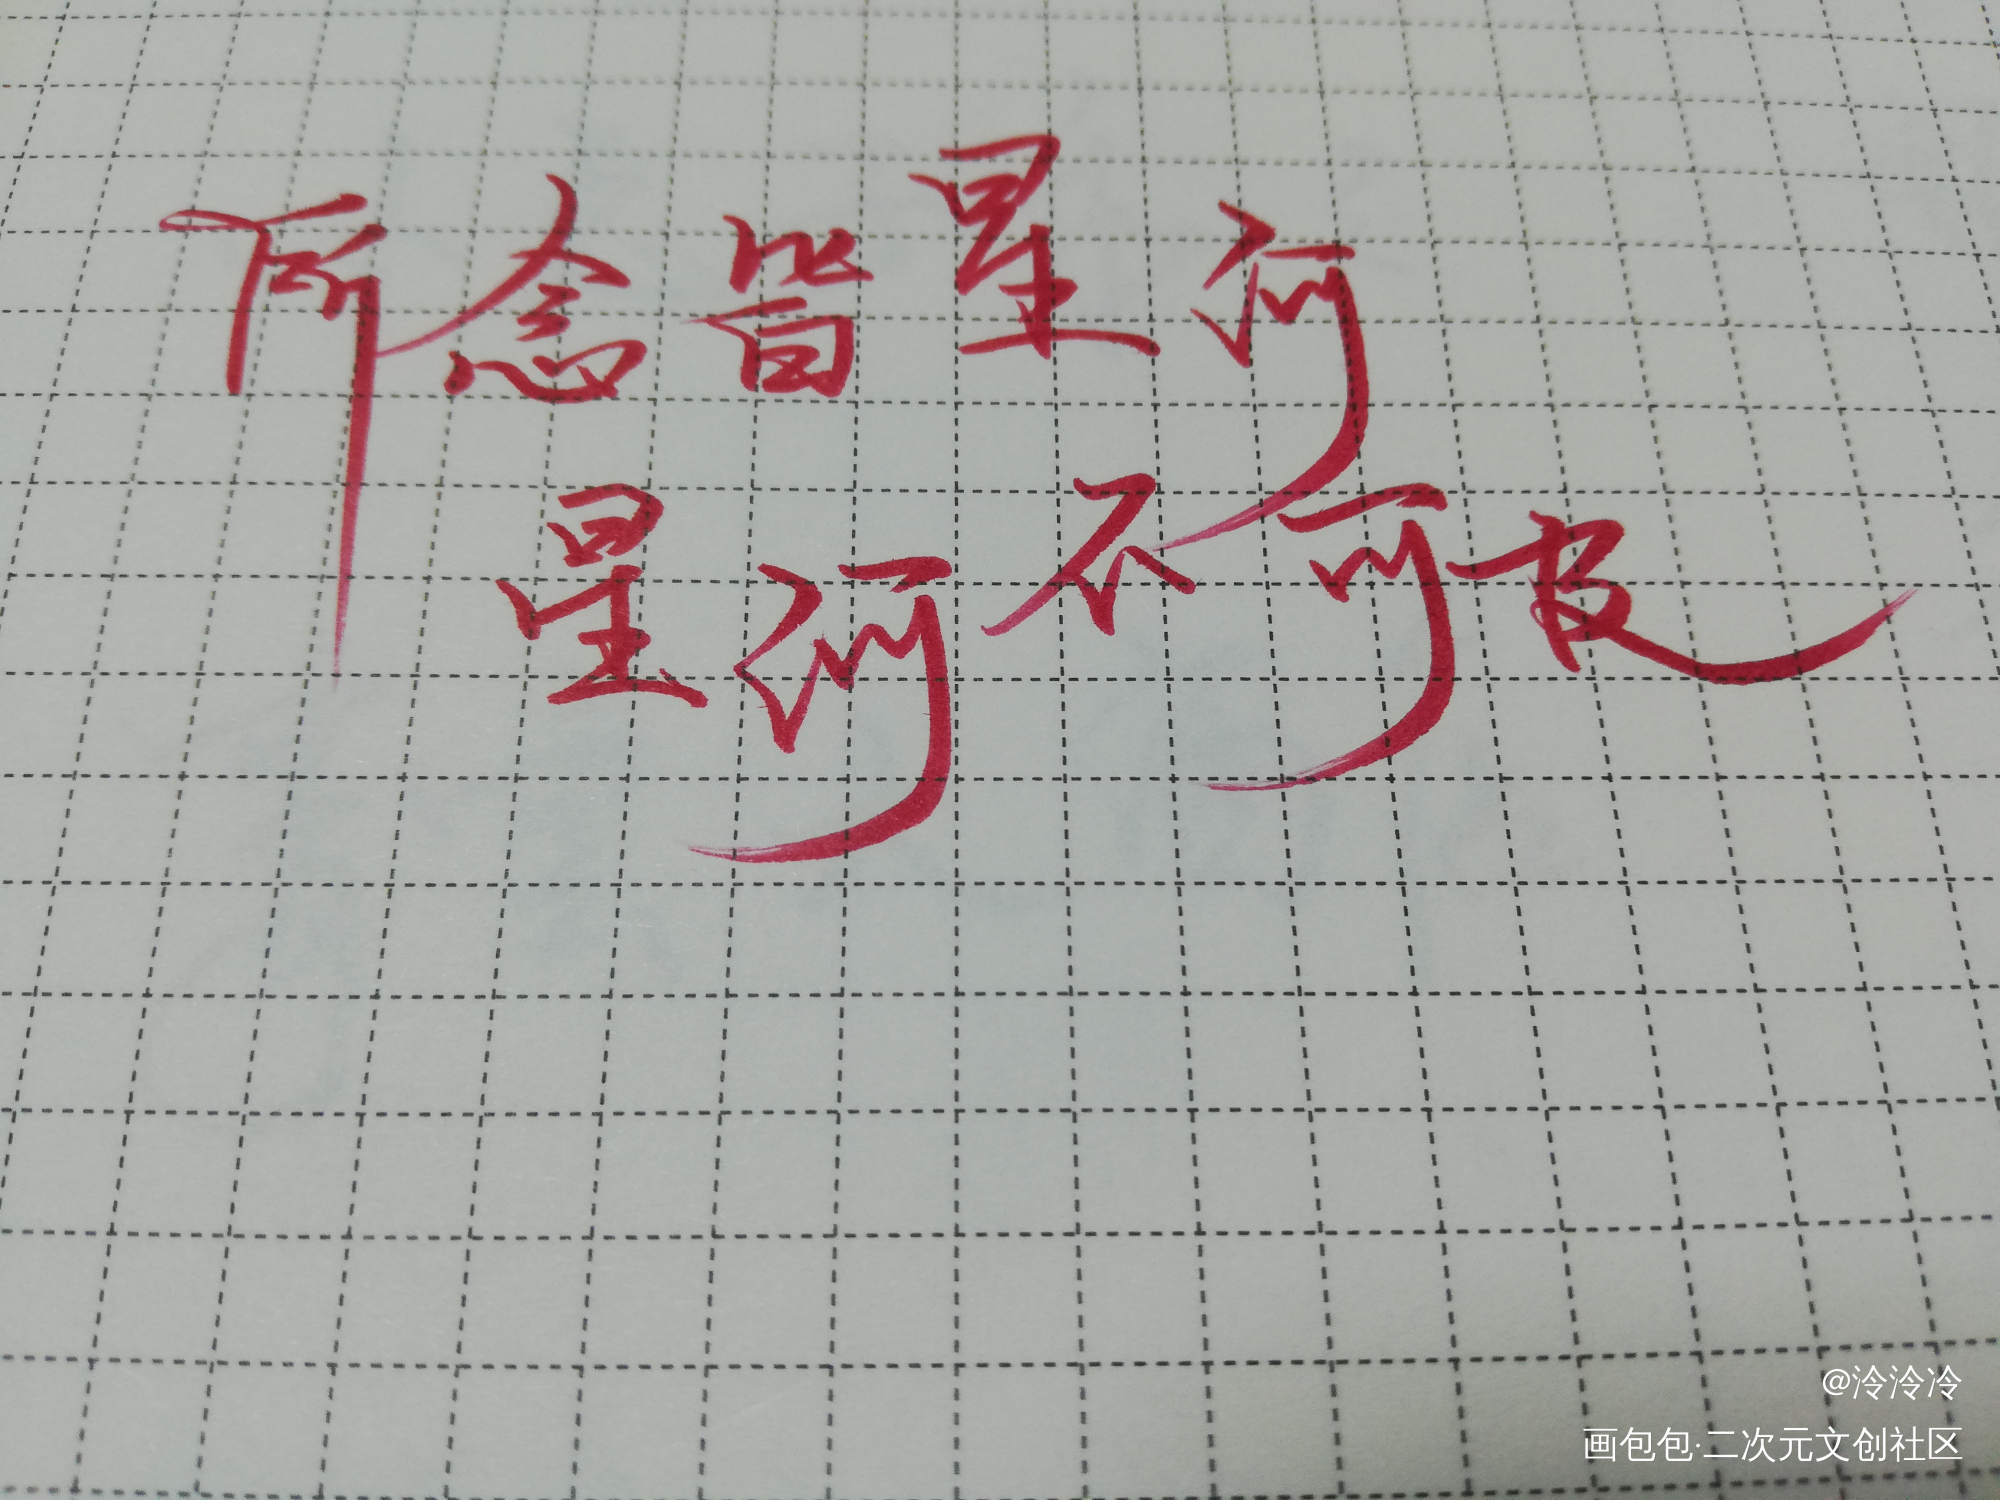 所念皆星河
星河不可及
@泠泠冷
画包包·二次元文创社区